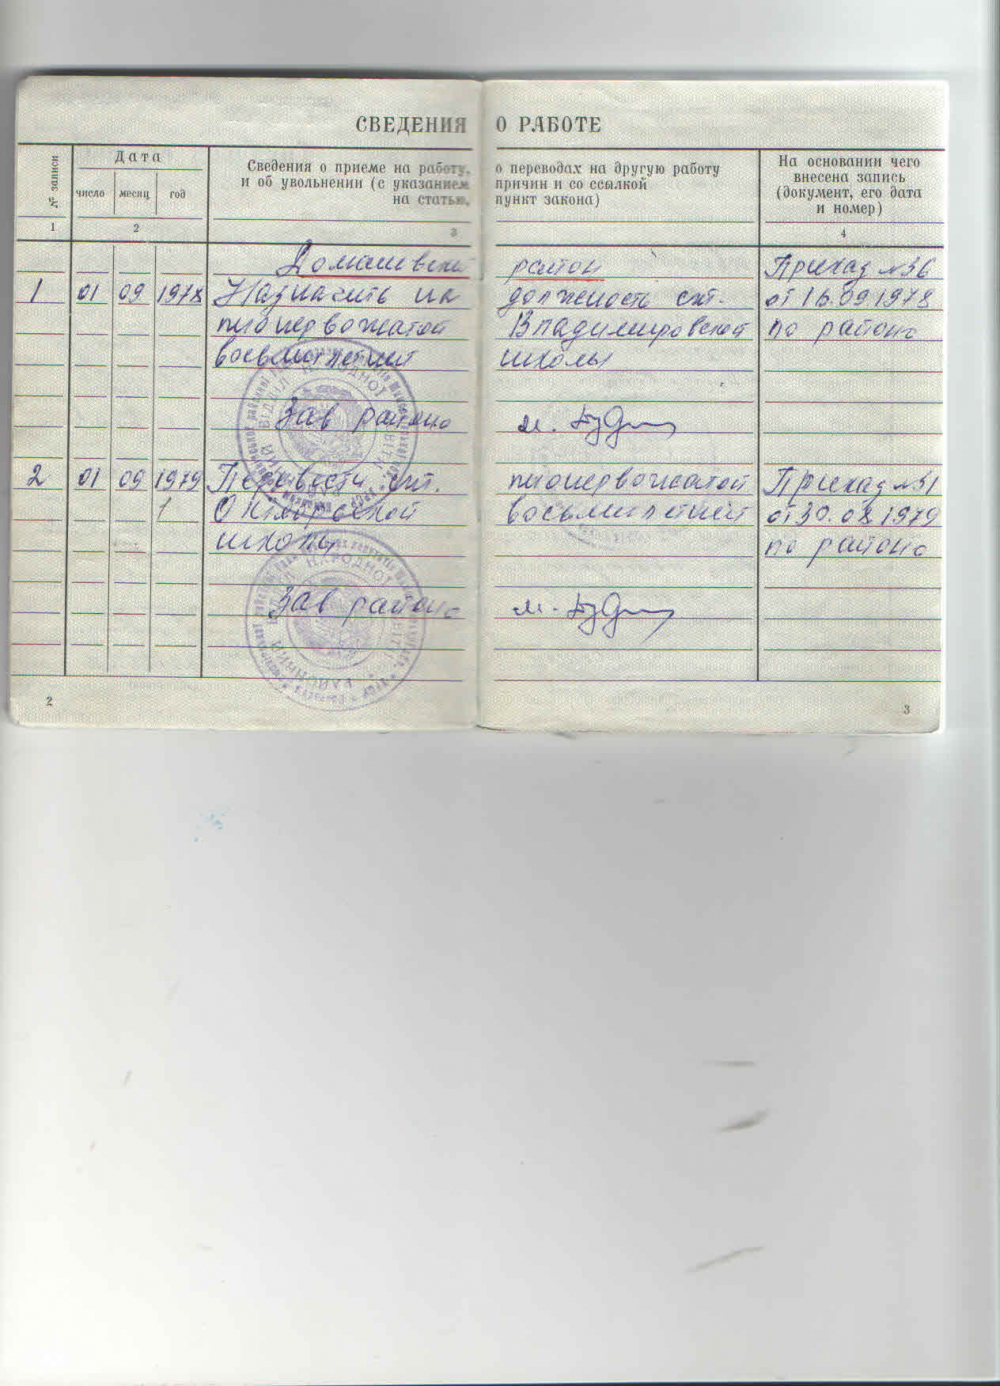 СВЕДЕНИЯ О РАБОТЕ
№ записи
Дата
число месяц год
Сведения о приеме на работу, о переводах на другую работу
и об увольнении (с указанием причин и со ссылкой
на статью, пункт закона)
На основании чего
внесена запись
(документ, его дата
и номер)
1 2 3 4
район Приказ №36
1 01 09 1978 Назначить на должность ст. от 16.09 1978
пионервожатой Владимировской по районо
восьмилетней школы
Зав районо
2 01 09 1979 Перевести ст. пионервожатой Приказ №51
восьмилетней от 30.08 1979
школы по районо
Зав районо
ВІДДІЛ НАРОДНОЇ ОСВІТИ
РАЙОННИЙ ВІДДІЛ НАРОДНОЇ ОСВІТИ
2 3